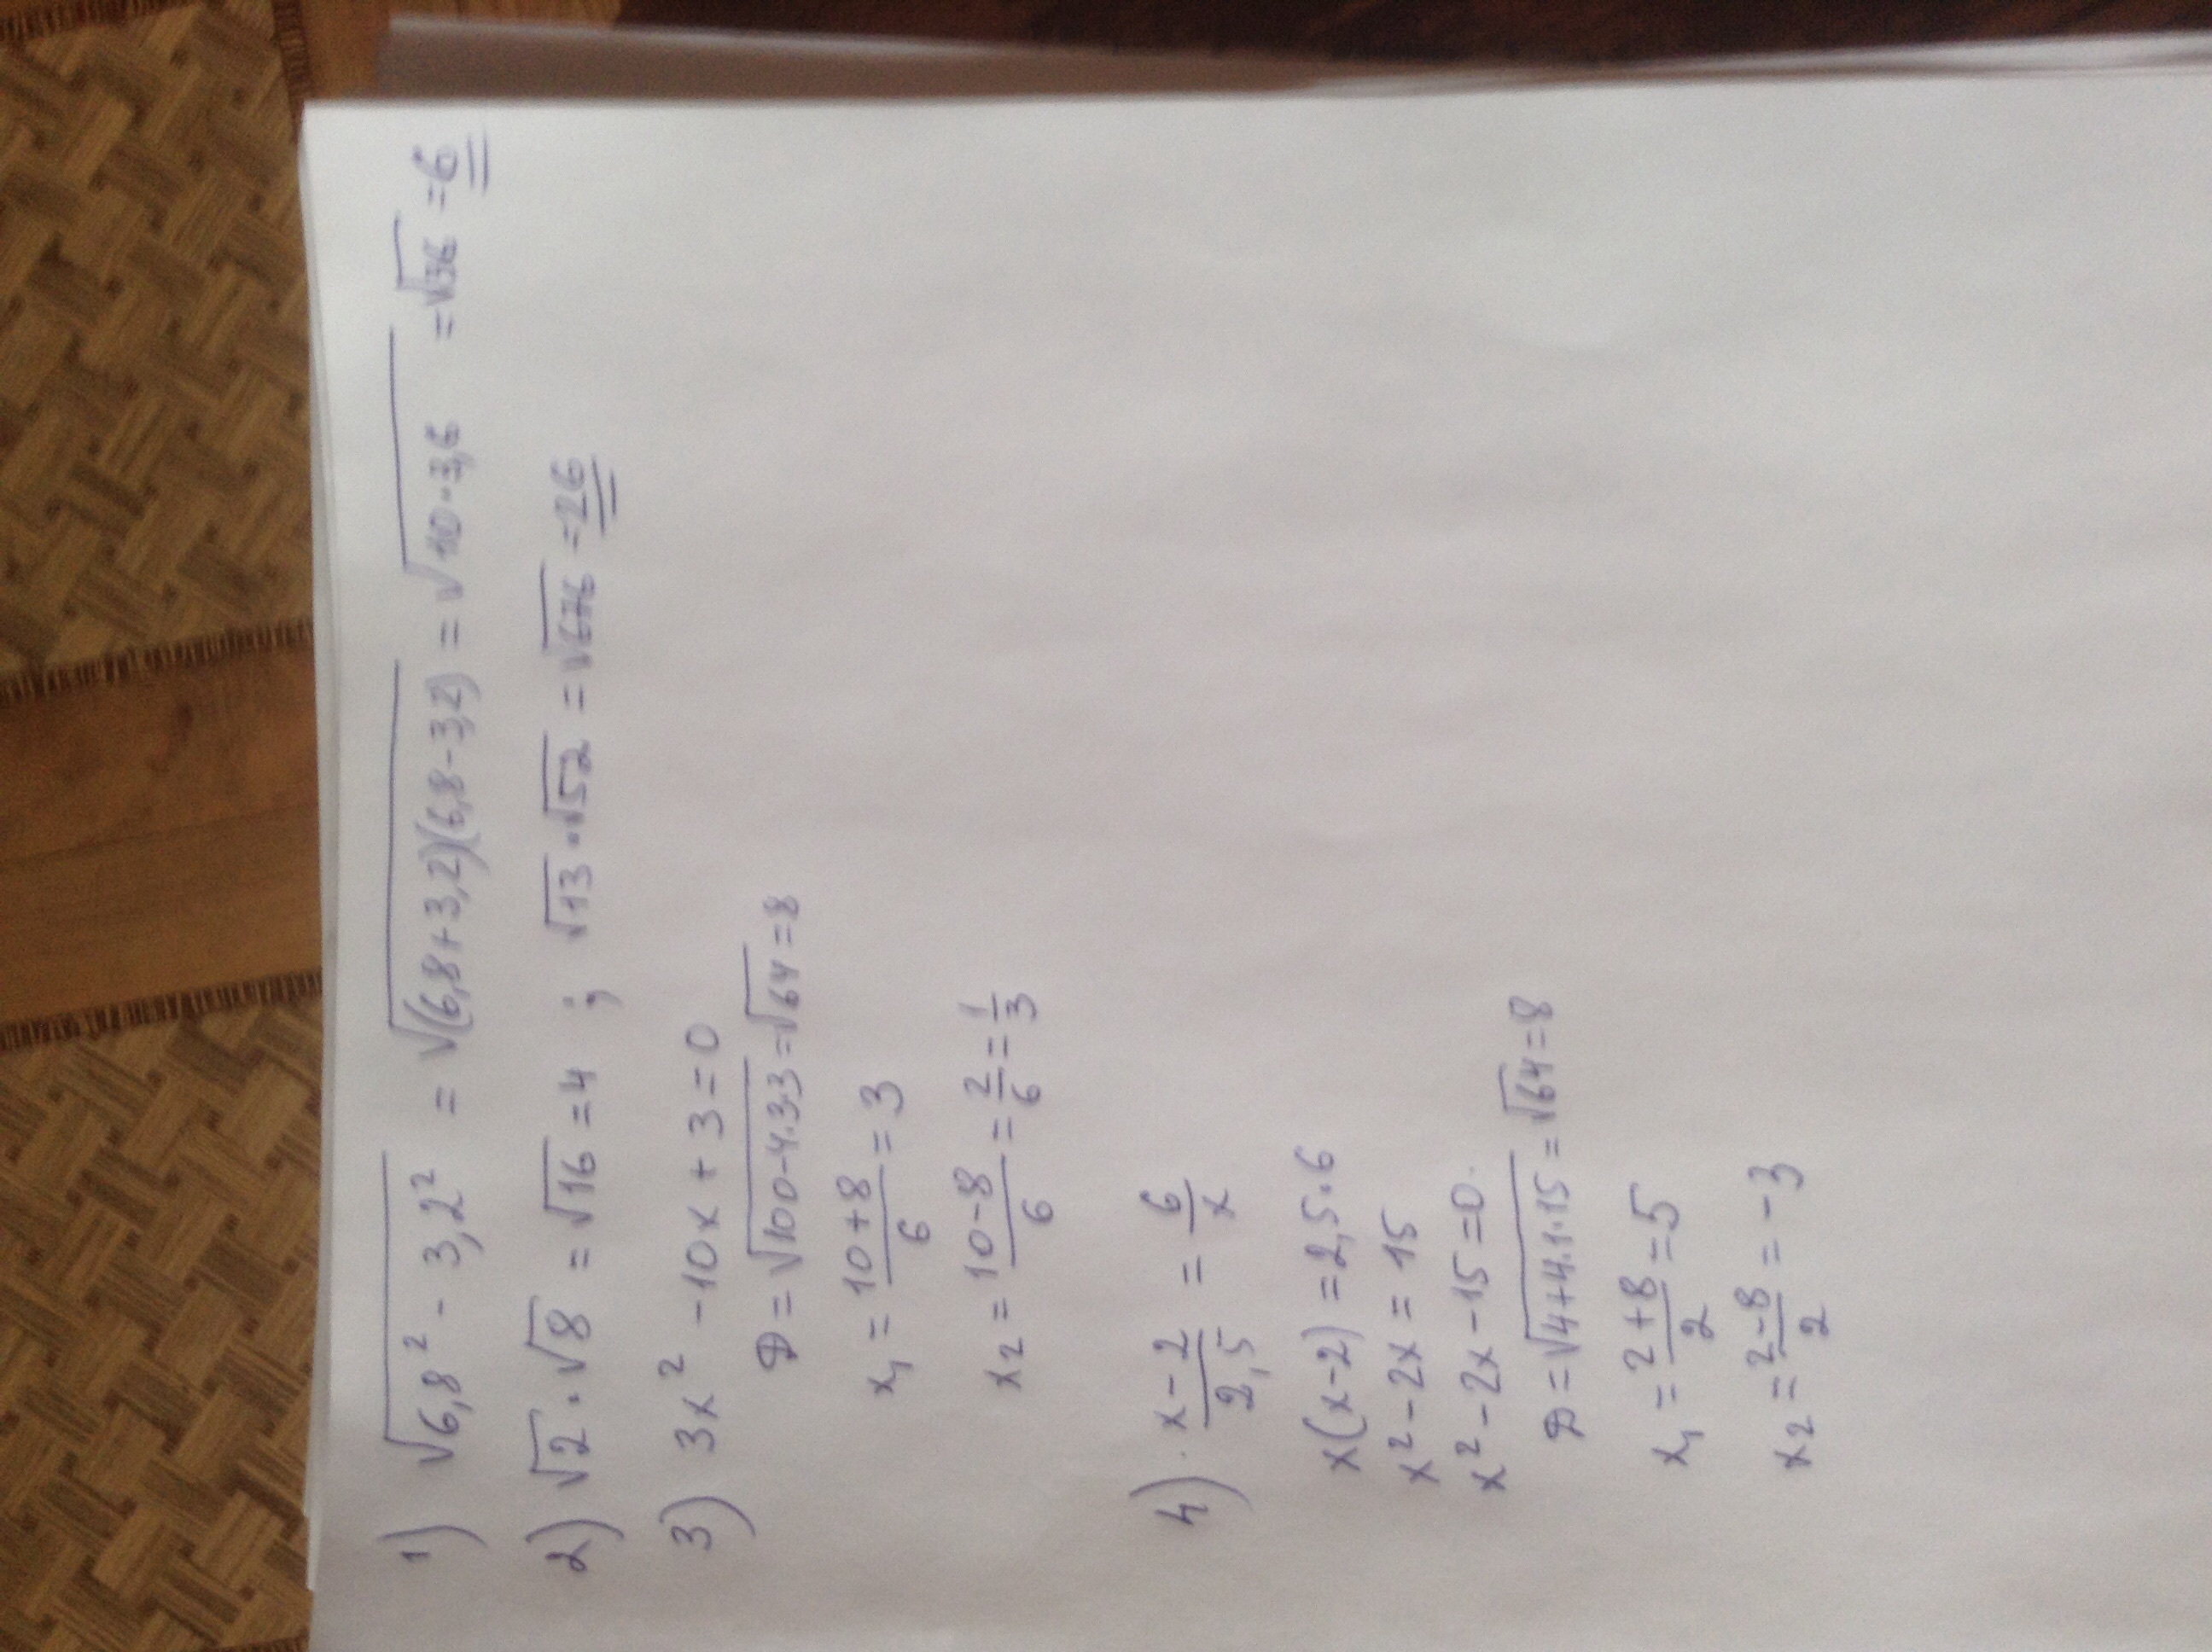 1) √6,8² - 3,2² = √(6,8+3,2)(6,8-3,2) = √10·3,6 = √36 = 6
2) √2 · √8 = √16 = 4 ; √13 · √52 = √676 = 26
3) 3x² - 10x + 3 = 0
D = √100-4·3·3 = √64 = 8
x₁ = (10+8)/6 = 3
x₂ = (10-8)/6 = 2/6 = 1/3
4) · (x-2)/2,5 = 6/x
x(x-2) = 2,5·6
x² - 2x = 15
x² - 2x - 15 = 0.
D = √4+4·1·15 = √64 = 8
x₁ = (2+8)/2 = 5
x₂ = (2-8)/2 = -3